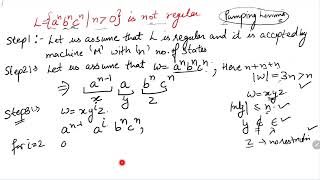 L={aⁿbⁿcⁿ | n>0} is not regular
Pumping Lemma
Step1:- Let us assume that L is regular and it is accepted by
machine 'M' with (n) no. of states
Step2):- Let us assume w = aⁿbⁿcⁿ, Here n+n+n
|w| = 3n > n
= aⁿ⁻¹ a bⁿcⁿ
x y z
w = xyz
|xy| ≤ n
y ≠ ε
z → no restriction
Step3):- w = xyⁱz
aⁿ⁻¹ aⁱ bⁿcⁿ,
for i=2 a